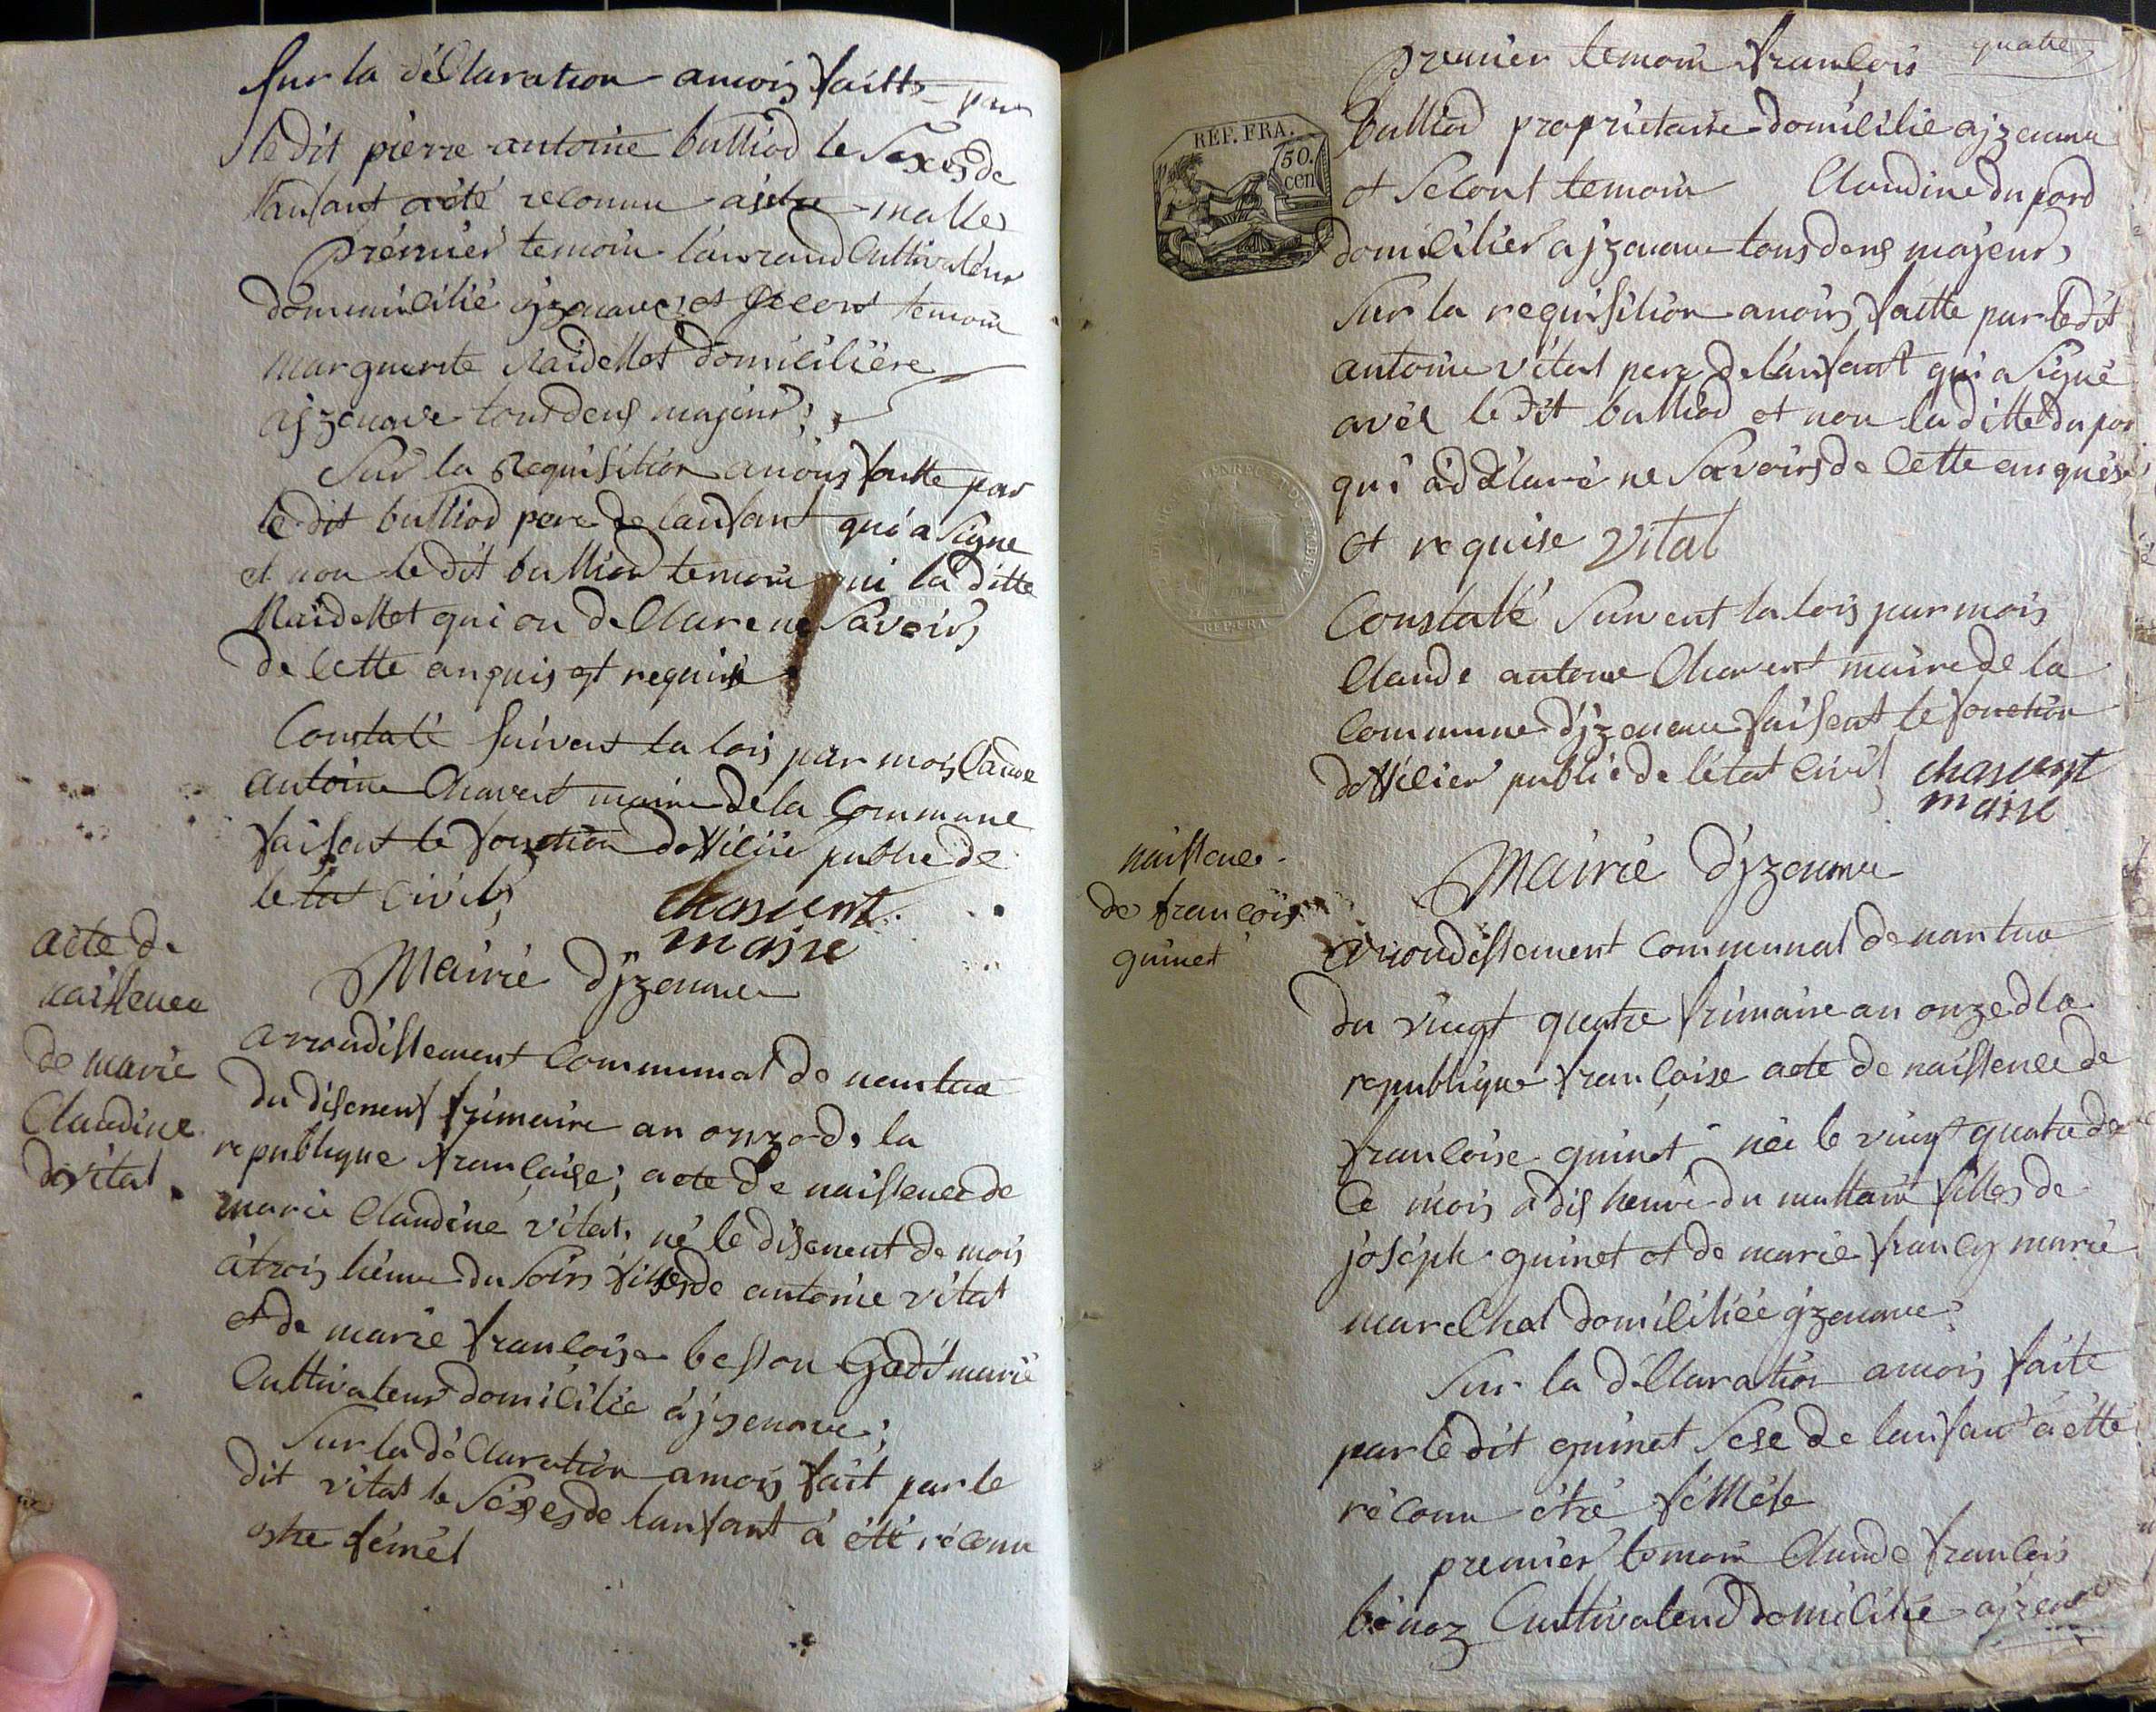 sur la déClaration anois faitte par
le dit pierre antoine bulliod le Sexes de
lanfant aété reconnu aistre malles
prémiér temoin laurand Cultivateur
dommicilié ajzenave et second temoin
marguerite Raidellet domicilière
ajzenave tous deus majeur;
Sur la Requisition anois faitte par
le dit bulliod pere de lanfant qui a Signe
et non le dit bulliod temoin ni la ditte
Raidellet qui on deClare ne Savoirs
de Cette anquis et requise
Constaté suivent la lois par mois Claude
antoine Chavent maire de la Commune
faisent le fonction dofficiie public de
letat Civils
chavent
maire
acte de
naissence
de marie
Claudine
dvital
Mairié djzenave
arrondissement Communal de nantua
du disneuf frimaire an onze de la
republique françaisse; acte de naissence de
marie Claudine vital, né le disneuf de mois
à trois heure du Soirs filles de antoine vital
et de marie françoise besson Gadit marié
Cultivateur domicilié à jzenave;
Sur la déClaration anois fait par le
dit vital le Séxes de lanfant à été réconu
estre fémél
quatre
premier temoin françois
bulliod propriétaire domicilié ajzenave
et Second temoin Claudine du pord
domicilier ajzenave tous deus majeurs
Sur la requisition anois faitte par le dit
antoine vital pere de lanfant qui a Signé
avéc le dit bulliod et non la ditte du por
qui à déClaré ne Savoirs de Cette anquise
et requise vital
REP. FRA.
50.
cen
REP. FRA
Constaté Suivent la lois par mois
Claude antoine Chavent maire de la
Commune djzenave faisent le fonction
dofficier public de létat Civil
chavent
maire
naissence
de françois
guinet
Mairié djzenave
arrondissement Communal de nantua
du vingt quatre frimaire an onze dla
republique françoise acte de naissence de
françoise guinet née le vingt quatre de
Ce mois à dis heure du mattain filles de
joséph guinet et de marie francoy marie
marechal domiciliée ajzenave
Sur la déClaration anois faite
par le dit guinet Sexe de lanfant à étté
réconu être fémèle
premier temoin Claude françois
bénoz Cultivateur domicilié ajzenave